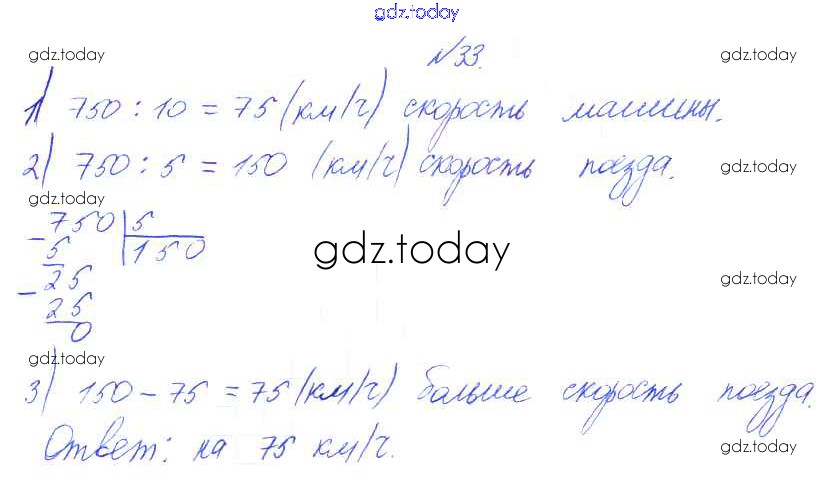 gdz.today
gdz.today №33. gdz.today
1) 750 : 10 = 75 (км/ч) скорость машины.
2) 750 : 5 = 150 (км/ч) скорость поезда. gdz.today
gdz.today
- 750 | 5
5 | 150
gdz.today
- 25
gdz.today
25
0
gdz.today gdz.today
3) 150 - 75 = 75 (км/ч) больше скорость поезда.
Ответ: на 75 км/ч. gdz.today